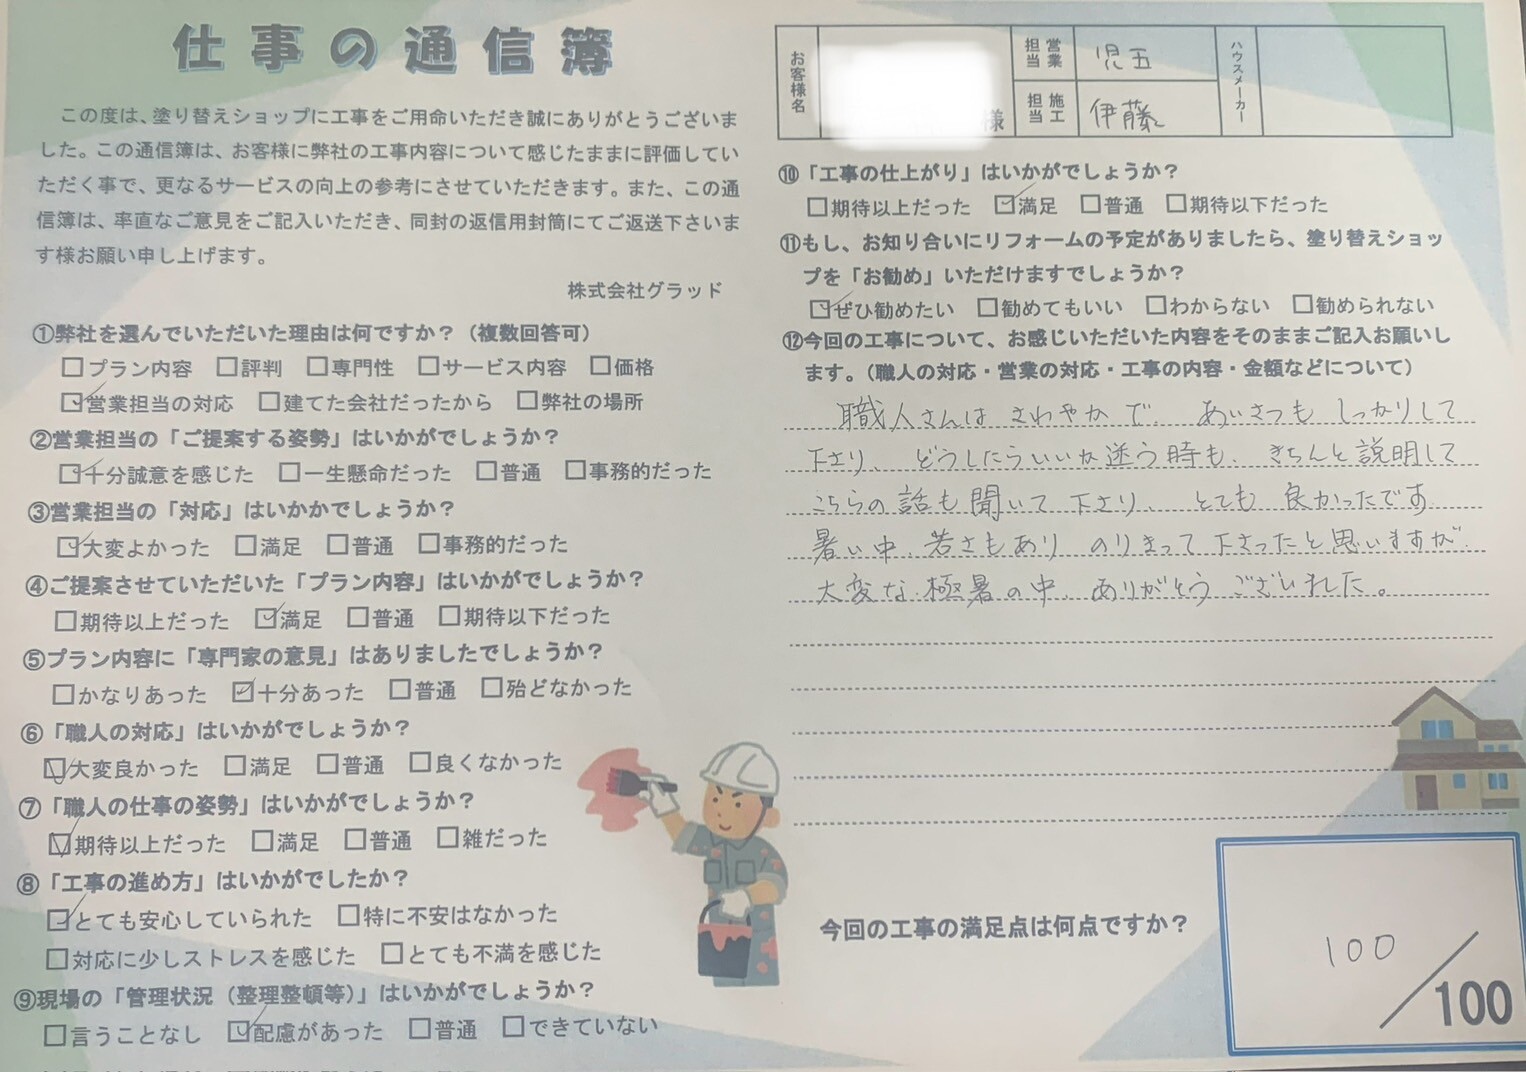 仕事の通信簿
この度は、塗り替えショップに工事をご用命いただき誠にありがとうございま
した。この通信簿は、お客様に弊社の工事内容について感じたままに評価してい
ただく事で、更なるサービスの向上の参考にさせていただきます。また、この通
信簿は、率直なご意見をご記入いただき、同封の返信用封筒にてご返送下さいま
す様お願い申し上げます。
株式会社グラッド
①弊社を選んでいただいた理由は何ですか？（複数回答可）
□プラン内容 □評判 □専門性 □サービス内容 □価格
☑営業担当の対応 □建てた会社だったから □弊社の場所
②営業担当の「ご提案する姿勢」はいかがでしょうか？
☑十分誠意を感じた □一生懸命だった □普通 □事務的だった
③営業担当の「対応」はいかかでしょうか？
☑大変よかった □満足 □普通 □事務的だった
④ご提案させていただいた「プラン内容」はいかがでしょうか？
□期待以上だった ☑満足 □普通 □期待以下だった
⑤プラン内容に「専門家の意見」はありましたでしょうか？
□かなりあった ☑十分あった □普通 □殆どなかった
⑥「職人の対応」はいかがでしょうか？
☑大変良かった □満足 □普通 □良くなかった
⑦「職人の仕事の姿勢」はいかがでしょうか？
☑期待以上だった □満足 □普通 □雑だった
⑧「工事の進め方」はいかがでしたか？
☑とても安心していられた □特に不安はなかった
□対応に少しストレスを感じた □とても不満を感じた
⑨現場の「管理状況（整理整頓等）」はいかがでしょうか？
□言うことなし ☑配慮があった □普通 □できていない
お客様名 様
営業担当 児玉
施工担当 伊藤
ハウスメーカー
⑩「工事の仕上がり」はいかがでしょうか？
□期待以上だった ☑満足 □普通 □期待以下だった
⑪もし、お知り合いにリフォームの予定がありましたら、塗り替えショッ
プを「お勧め」いただけますでしょうか？
☑ぜひ勧めたい □勧めてもいい □わからない □勧められない
⑫今回の工事について、お感じいただいた内容をそのままご記入お願いし
ます。（職人の対応・営業の対応・工事の内容・金額などについて）
職人さんは さわやかで、あいさつも しっかりして
下さり、どうしたらいいか迷う時も、きちんと説明して
こちらの話も聞いて下さり、とても良かったです
暑い中、若さもあり のりきって下さったと思いますが
大変な極暑の中、ありがとうございました。
今回の工事の満足点は何点ですか？
100
/100